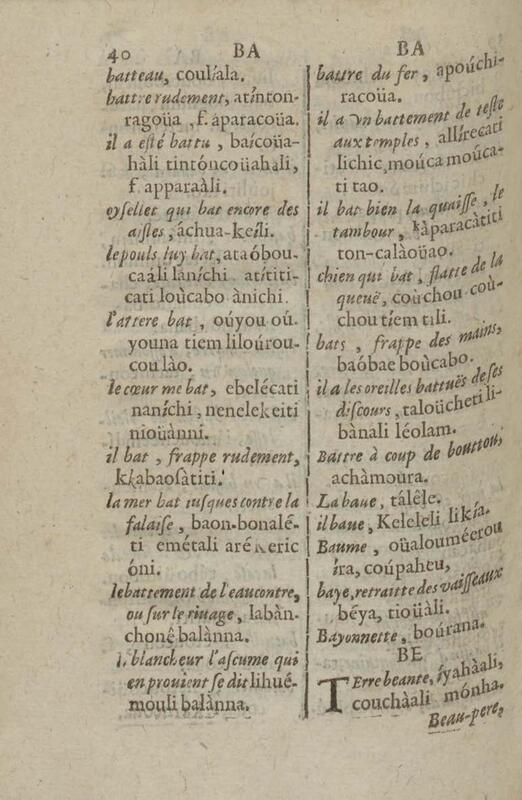 40 BA
batteau, coulíala.
battre rudement, atínton-
ragoüa ,f. aparacoüa.
il a esté battu , baícoüa-
hàli tintóncoüahali,
f. apparaàli.
oyseliet qui bat encore des
aisles, áchua-keíli.
le pouls luy bat, ataóbou-
caáli làníchi atítiti-
cati loùcabo ànichi.
l'artere bat , oúyou oú.
youna tiem liloúrou-
cou lào.
le cœur me bat, ebelécati
naníchi, nenelekeiti
nioüànni.
il bat , frappe rudement,
kkabaosàtiti.
la mer bat iusques contre la
falaise, baon-bonalé-
ti emétali aré keric
óni.
le battement de l'eau contre,
ou sur le riuage, labàn-
chonê balànna.
l. blancheur l'ascume qui
en prouient se dit lihué-
mouli balànna.
BA
battre du fer, apoúchi-
racoüa.
il a vn battement de teste
aux temples, allírecati
lichic, moúca moúca-
ti tao.
il bat bien la quaisse, le
tambour, kàparacàtiti
ton-calàoüao.
chien qui bat, flatte de la
queuë, coùchou coù-
chou tíem tili.
bats, frappe des mains,
baóbae boùcabo.
il a les oreilles battuës de ses
discours, taloücheti li-
bànali léolam.
Battre à coup de boutton,
achàmoura.
La baue, tálêle.
il baue, Keleleli likía.
Baume , oüaloumécrou
íra, coúpaheu,
baye, retraitte des vaisseaux
béya, tioüàli.
Bayonnette, boúrana.
BE
TErre beante, íyahàali,
couchàali mónha.
Beau-pere,